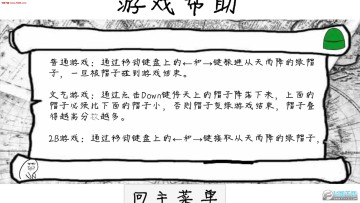 游戏帮助
普通游戏：通过移动键盘上的←和→键躲避从天而降的绿帽
子，一旦被帽子砸到游戏结束。
文气游戏：通过点击Down键使天上的帽子降落下来，上面的
帽子必须比下面的帽子小，否则帽子复原游戏结束，帽子叠
得越高分数越多。
2B游戏：通过移动键盘上的←和→键接取从天而降的绿帽子，
回主菜单